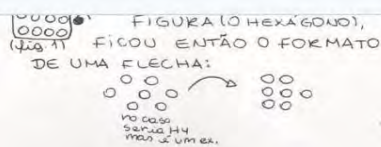 FIGURA (O HEXÁGONO),
(fig. 1) FICOU ENTÃO O FORMATO
DE UMA FLECHA:
no caso
seria H4
mas é um ex.